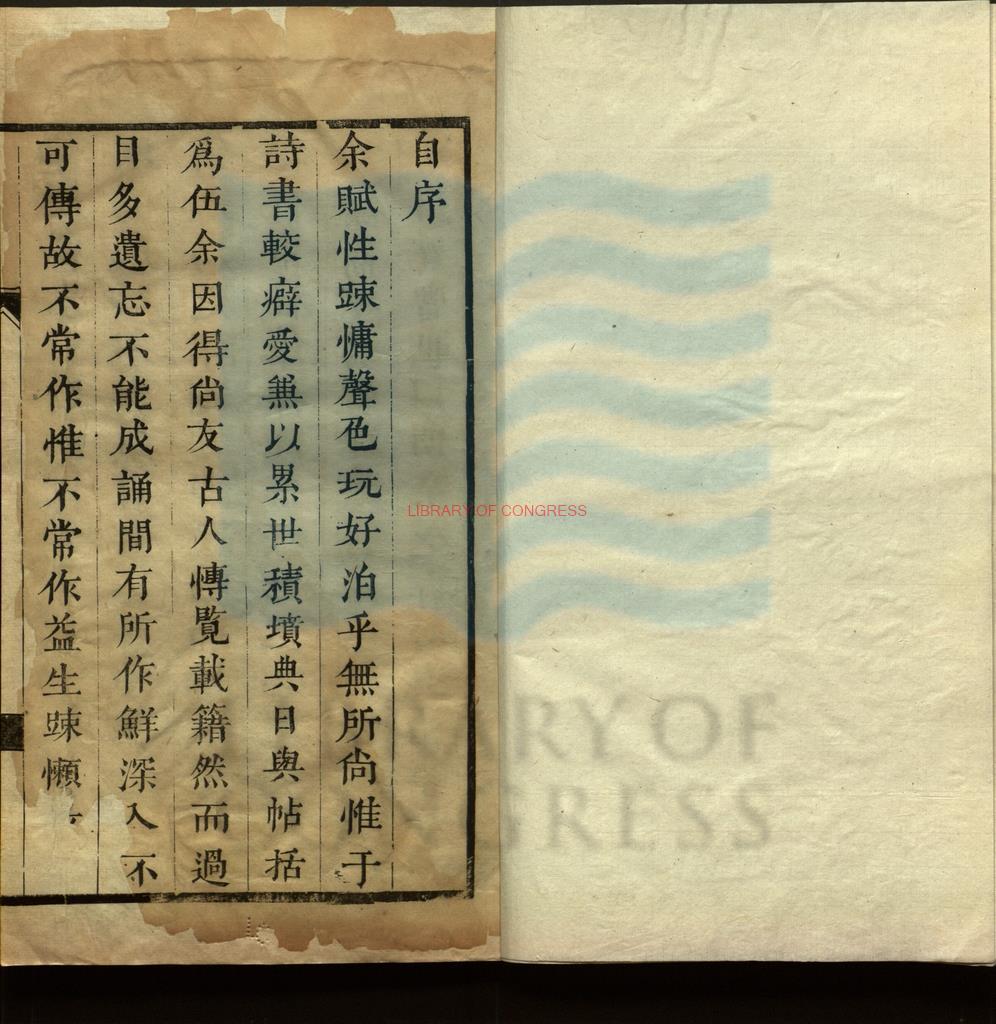 自序
余賦性踈慵聲色玩好泊乎無所尙惟于
詩書較癖愛兼以累世積墳典日與帖括
爲伍余因得尙友古人慱覽載籍然而過
目多遺忘不能成誦間有所作鮮深入不
可傳故不常作惟不常作益生踈懶
LIBRARY OF CONGRESS